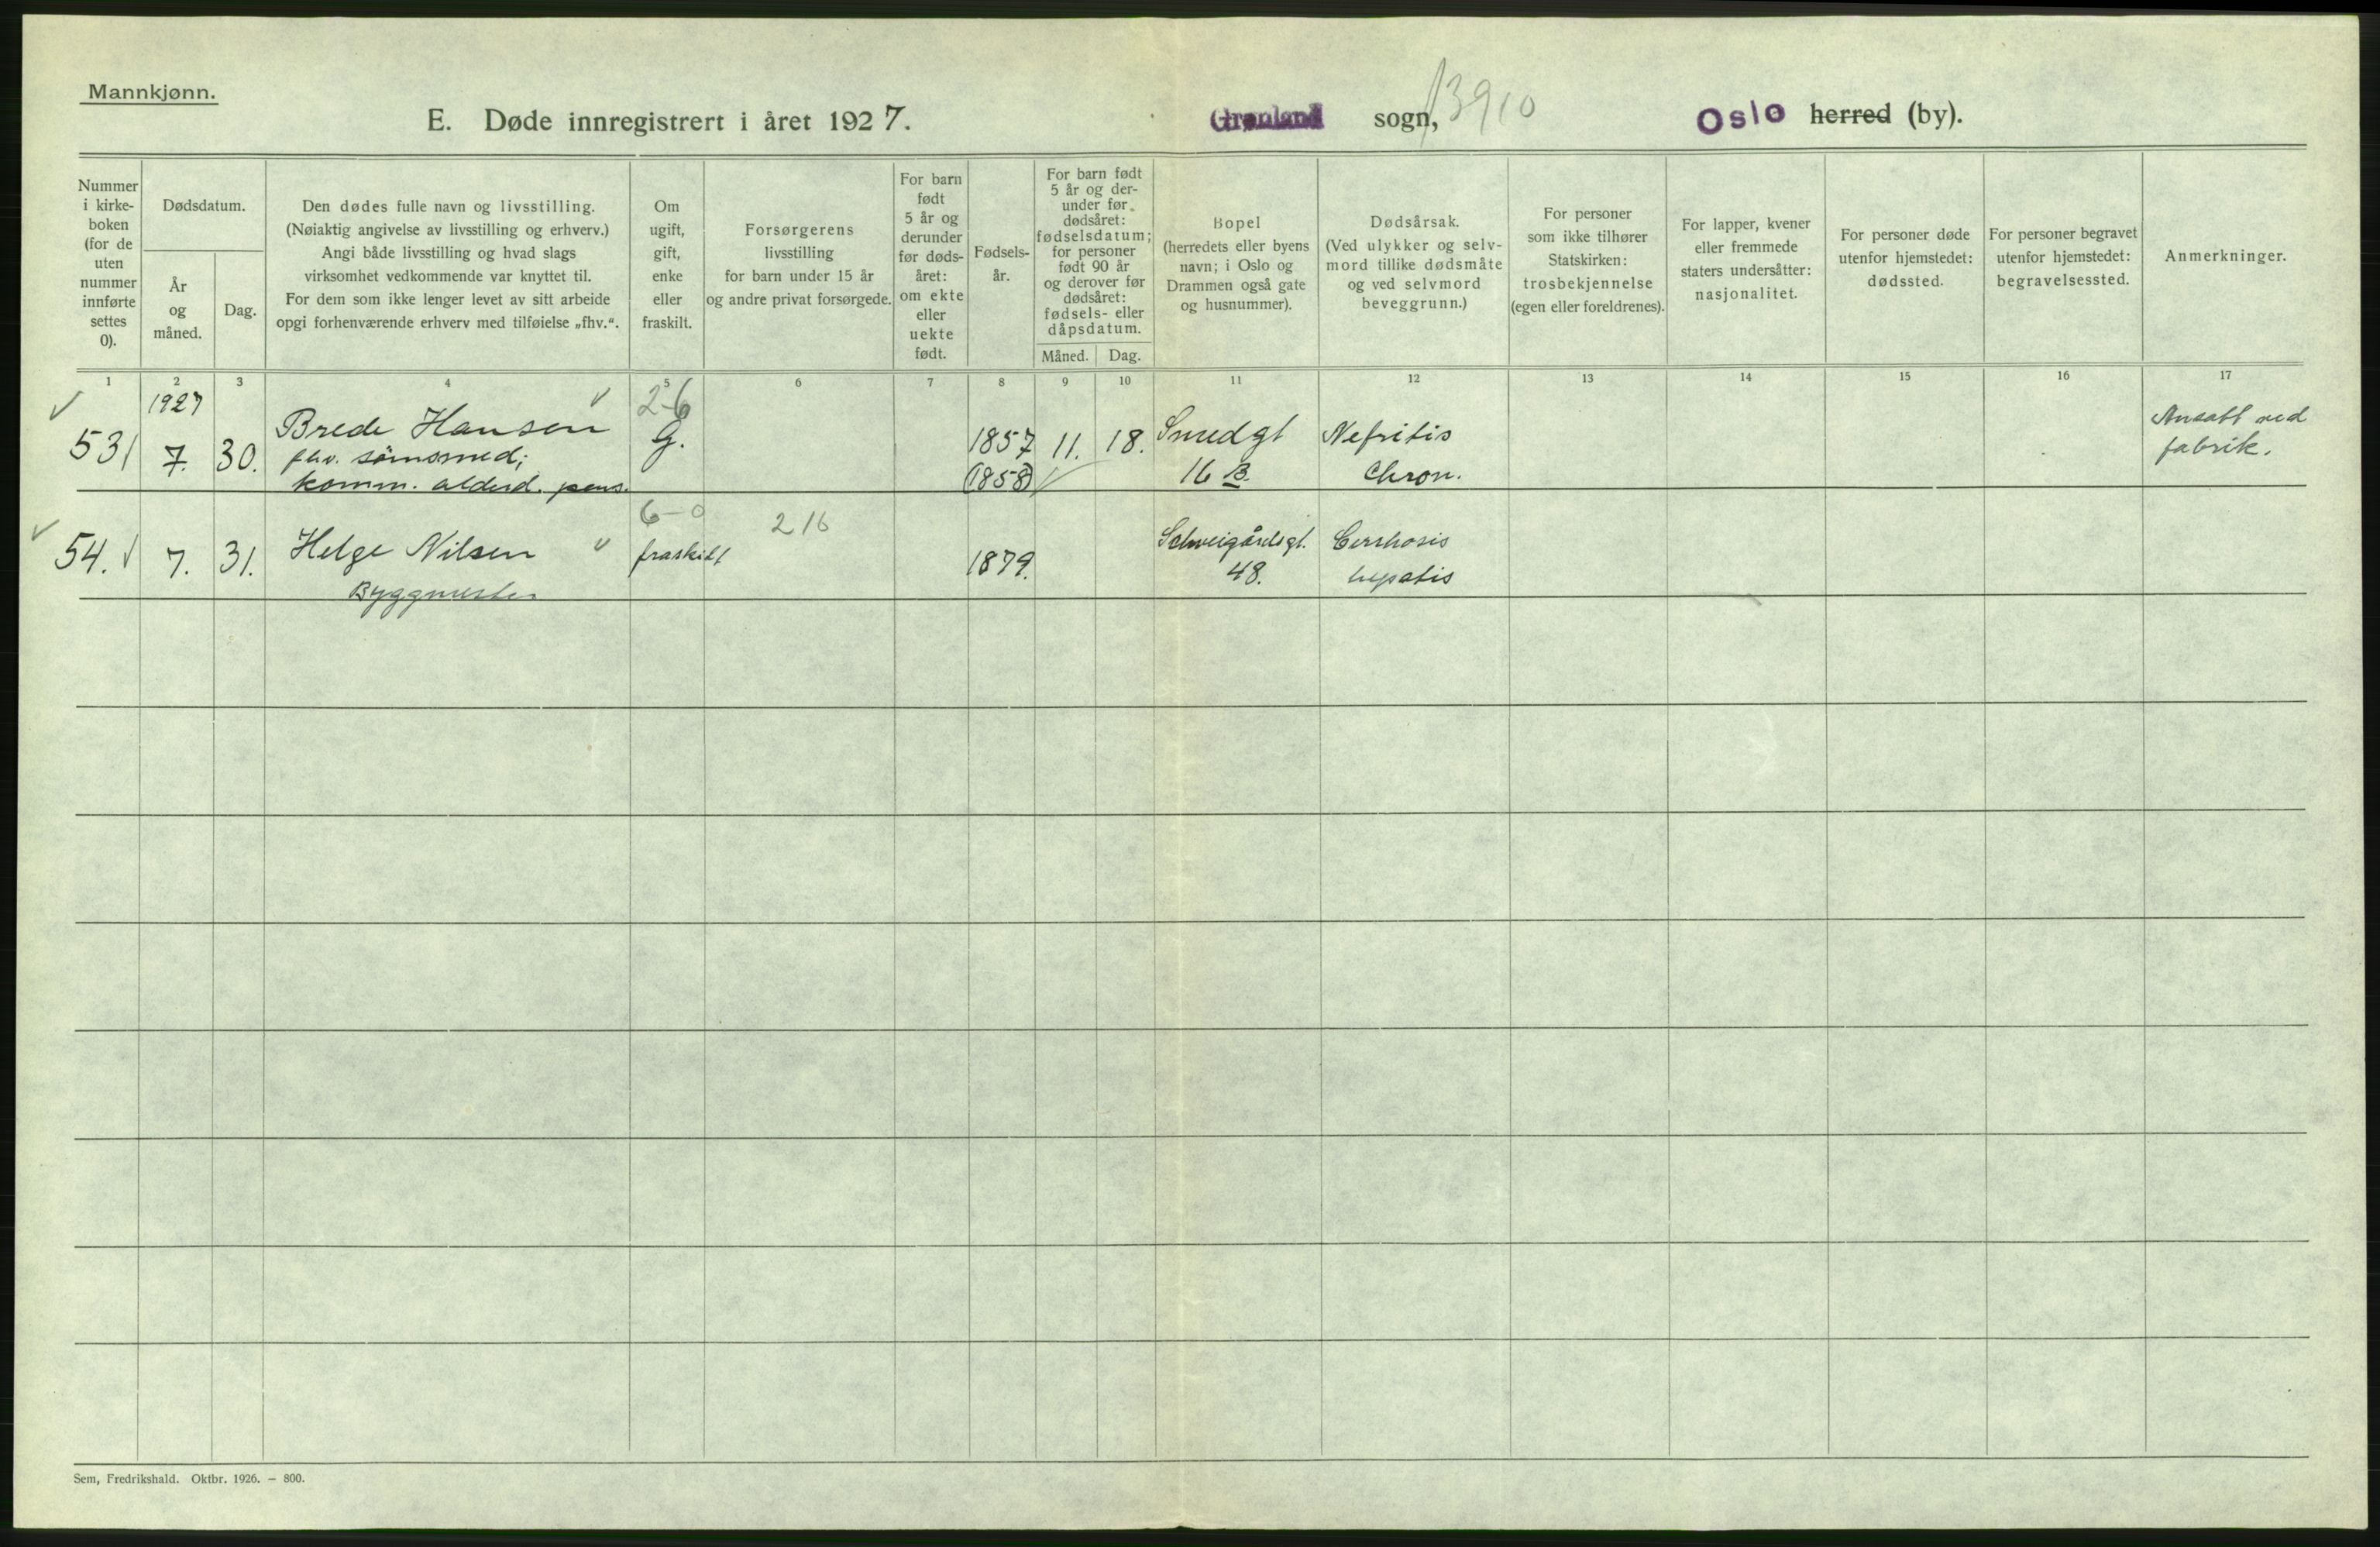 Mannkjønn.
E. Døde innregistrert i året 1927.
Grønland sogn, 3910
Oslo herred (by).
Nummer i kirke-boken (for de uten nummer innførte settes 0).
Dødsdatum.
År og måned.
Dag.
Den dødes fulle navn og livsstilling.
(Nøiaktig angivelse av livsstilling og erhverv.)
Angi både livsstilling og hvad slags
virksomhet vedkommende var knyttet til.
For dem som ikke lenger levet av sitt arbeide
opgi forhenværende erhverv med tilføielse „fhv.“.
Om
ugift,
gift,
enke
eller
fraskilt.
Forsørgerens
livsstilling
for barn under 15 år
og andre privat forsørgede.
For barn
født
5 år og
derunder
før døds-
året:
om ekte
eller
uekte
født.
Fødsels-
år.
For barn født
5 år og der-
under før
dødsåret:
fødselsdatum;
for personer
født 90 år
og derover før
dødsåret:
fødsels- eller
dåpsdatum.
Måned.
Dag.
Bopel
(herredets eller byens
navn; i Oslo og
Drammen også gate
og husnummer).
Dødsårsak.
(Ved ulykker og selv-
mord tillike dødsmåte
og ved selvmord
beveggrunn.)
For personer
som ikke tilhører
Statskirken:
trosbekjennelse
(egen eller foreldrenes).
For lapper, kvener
eller fremmede
staters undersåtter:
nasjonalitet.
For personer døde
utenfor hjemstedet:
dødssted.
For personer begravet
utenfor hjemstedet:
begravelsessted.
Anmerkninger.
1 2 3 4 5 6 7 8 9 10 11 12 13 14 15 16 17
1927
2-6
53 7. 30. Brede Hansen G. 1857 11. 18. Smedgt Nefritis Ansatt ved
fhv. sømsmed; (1858) 16 B. Chron. fabrik.
komm. alderd. pens.
6-0 216
54. 7. 31. Helge Nilsen fraskilt 1879. Schweigårdsgt. Cirrhosis
Byggmester 48. hepatis
Sem, Fredrikshald. Oktbr. 1926. – 800.